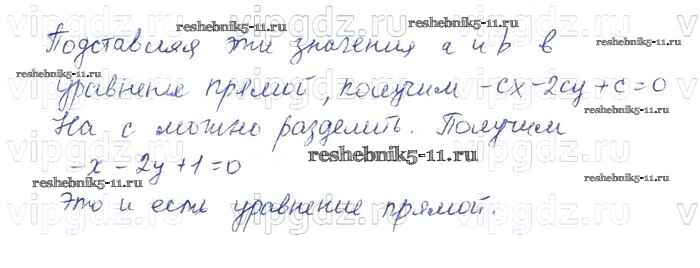 Подставляя эти значения a и b в
уравнение прямой, получим -cx-2cy+c=0
На c можно разделить. Получим
-x-2y+1=0
Это и есть уравнение прямой.
reshebnik5-11.ru
reshebnik5-11.ru
reshebnik5-11.ru
reshebnik5-11.ru
reshebnik5-11.ru
vipgdz.ru
vipgdz.ru
vipgdz.ru